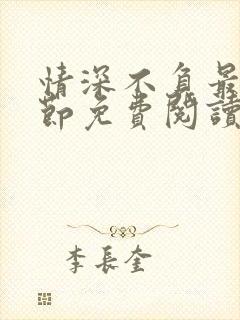 情深不負最
節免費閱讀
李長奎